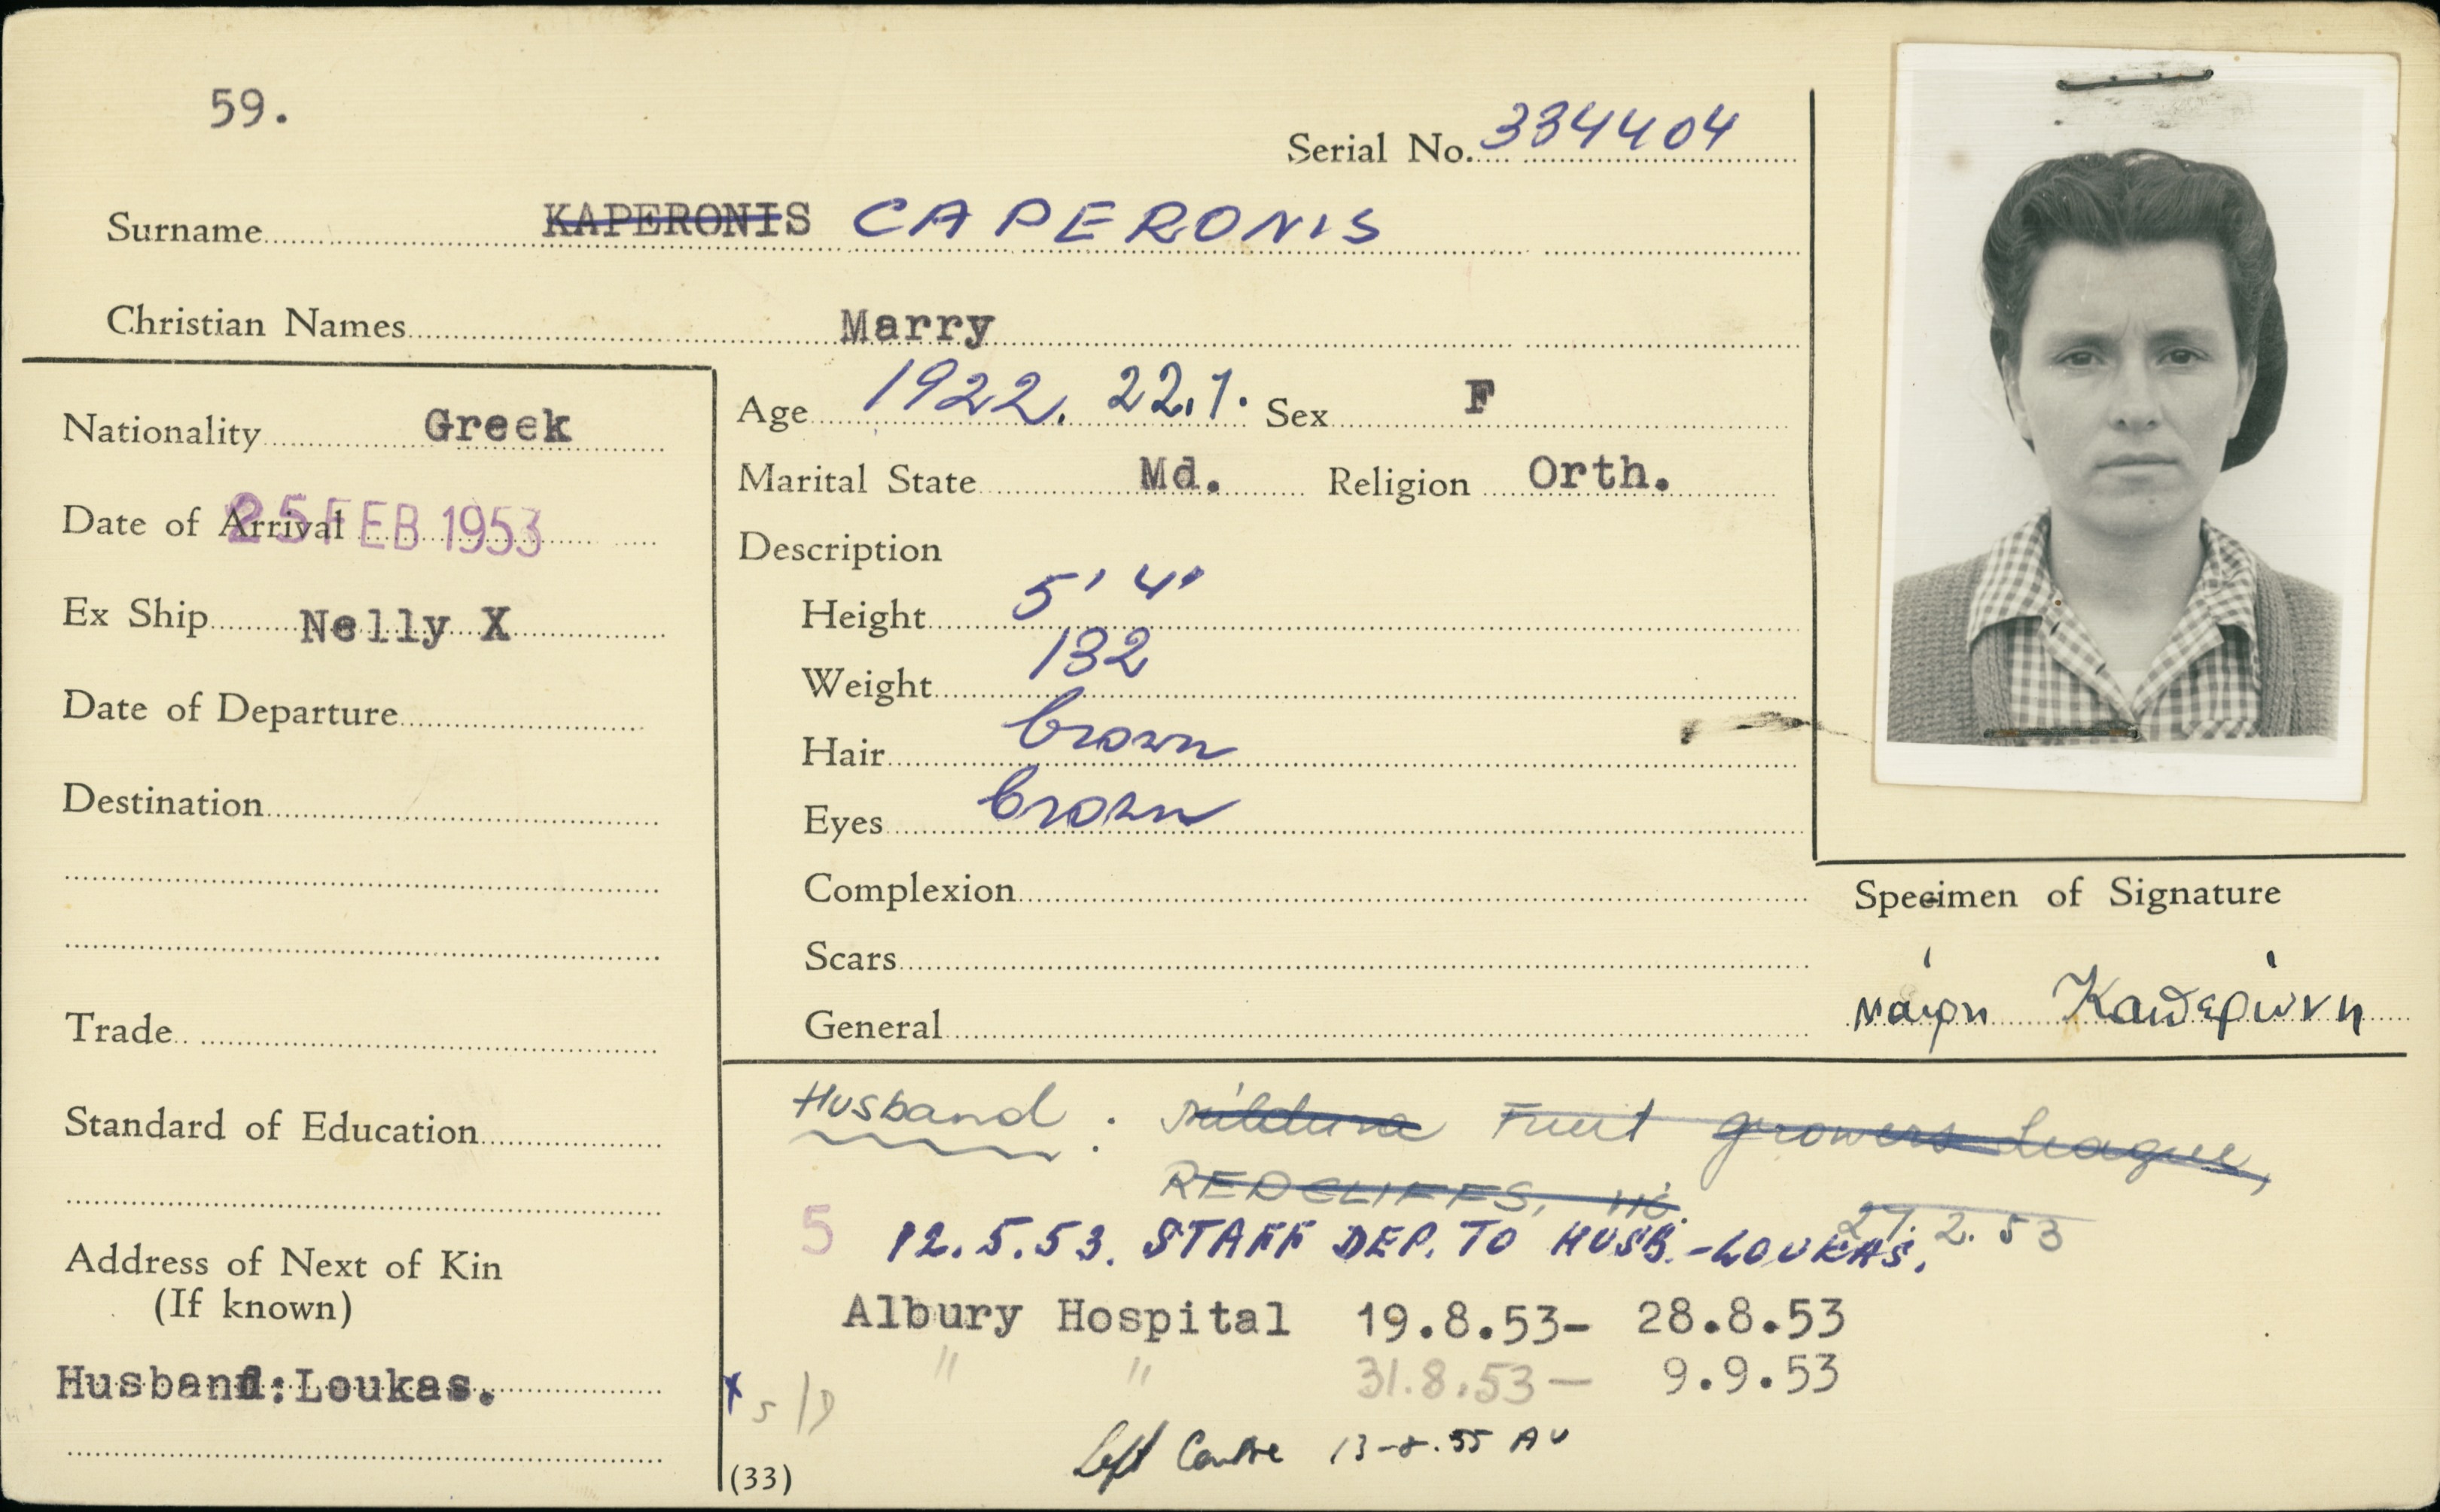 59.
Serial No. 334404
Surname KAPERONIS CAPERONIS
Christian Names Marry
Nationality Greek
Date of Arrival 25 FEB 1953
Ex Ship Nelly X
Date of Departure
Destination
Trade
Standard of Education
Address of Next of Kin
(If known)
Husband: Loukas.
Age 1922. 22.1. Sex F
Marital State Md. Religion Orth.
Description
Height 5' 4'
Weight 132
Hair brown
Eyes brown
Complexion
Scars
General
Specimen of Signature
Μαίρη Καπερώνη
Husband: Mildura Fruit growers League,
REDCLIFFS, Vic.
27.2.53
5 12.5.53. STAFF DEP. TO HUSB. - LOUKAS.
Albury Hospital 19.8.53- 28.8.53
" " 31.8.53- 9.9.53
x S/D
Left Centre
(33)